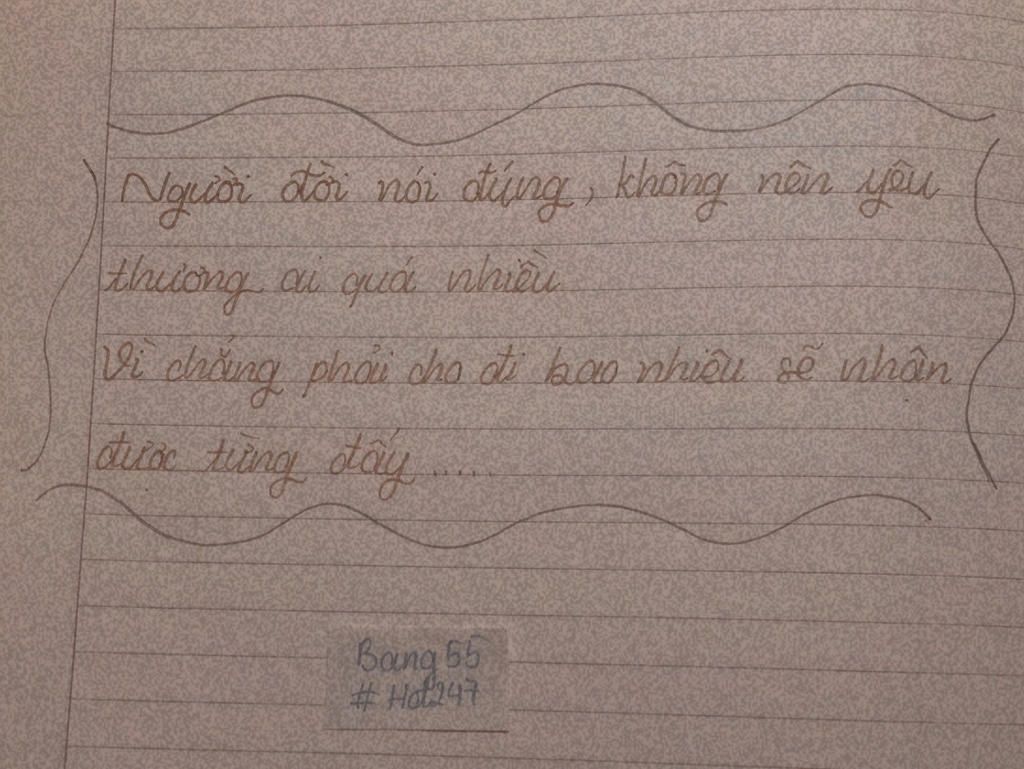 Người đời nói đúng, không nên yêu
thương ai quá nhiều
Vì chẳng phải cho đi bao nhiêu sẽ nhận
được từng đấy.....
Bang55
# Hot247